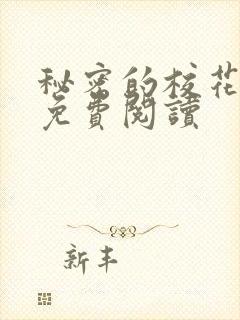 秘密的校花
免費閱讀
新丰